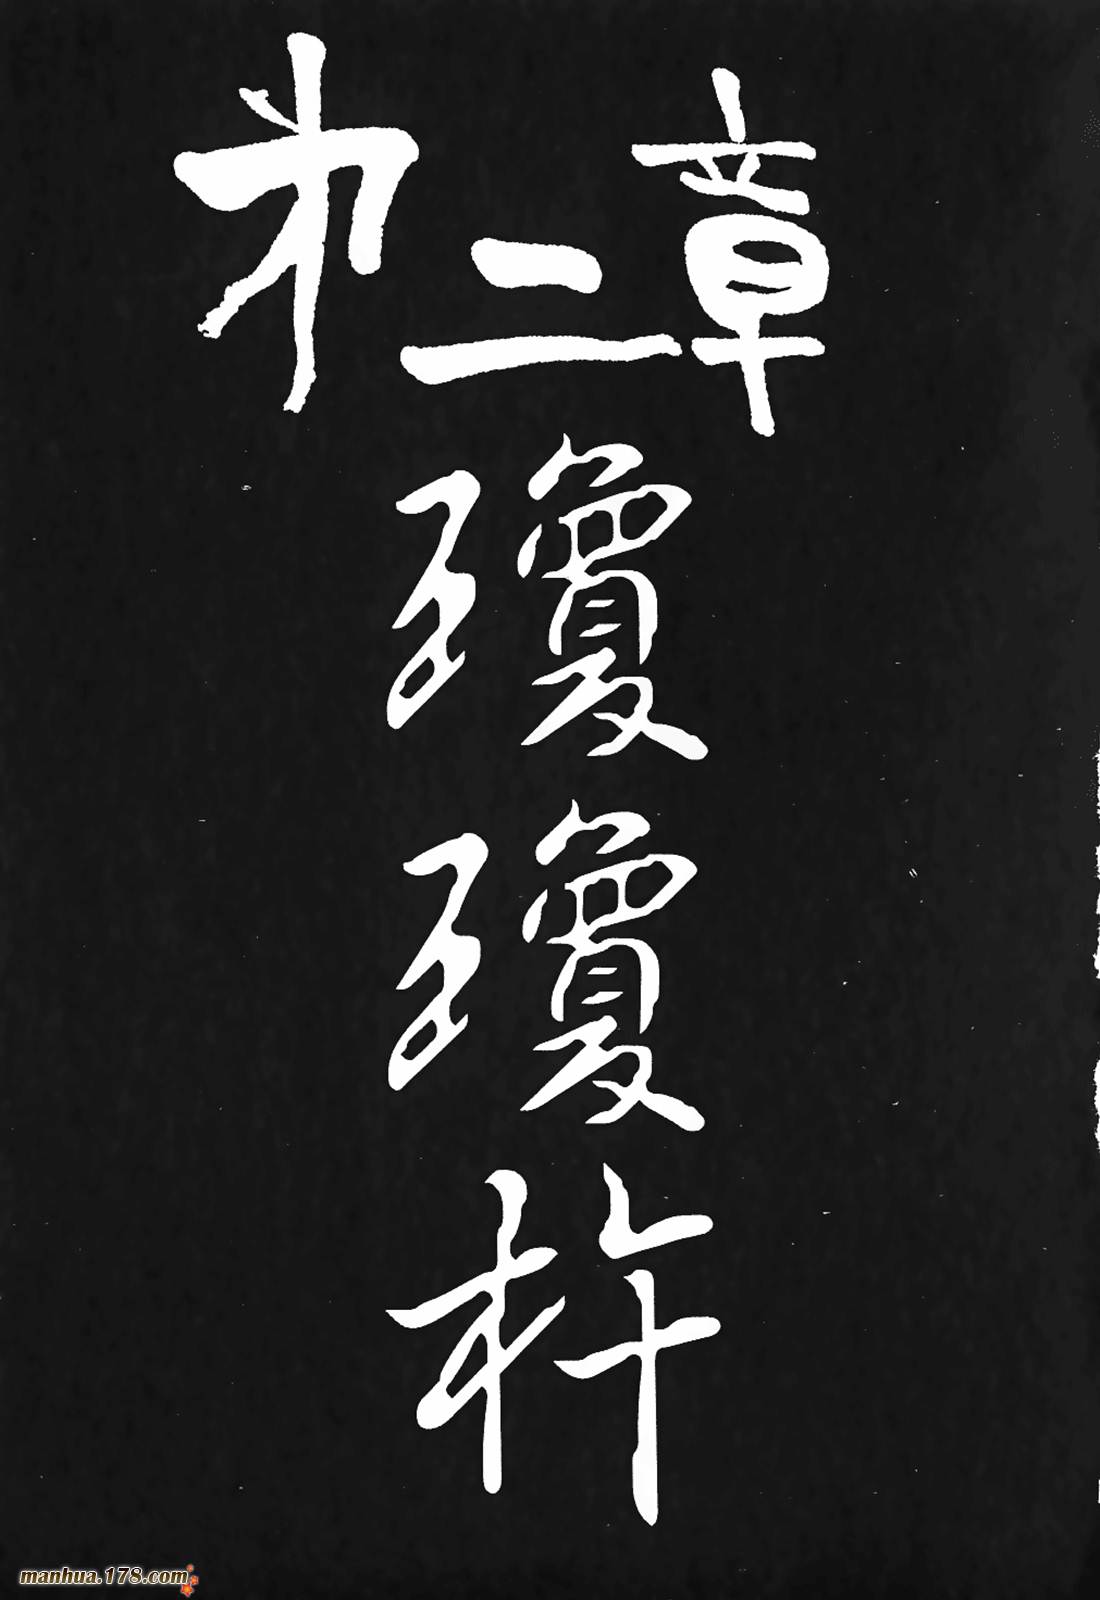 第二章
瓊瓊杵
manhua.178.com